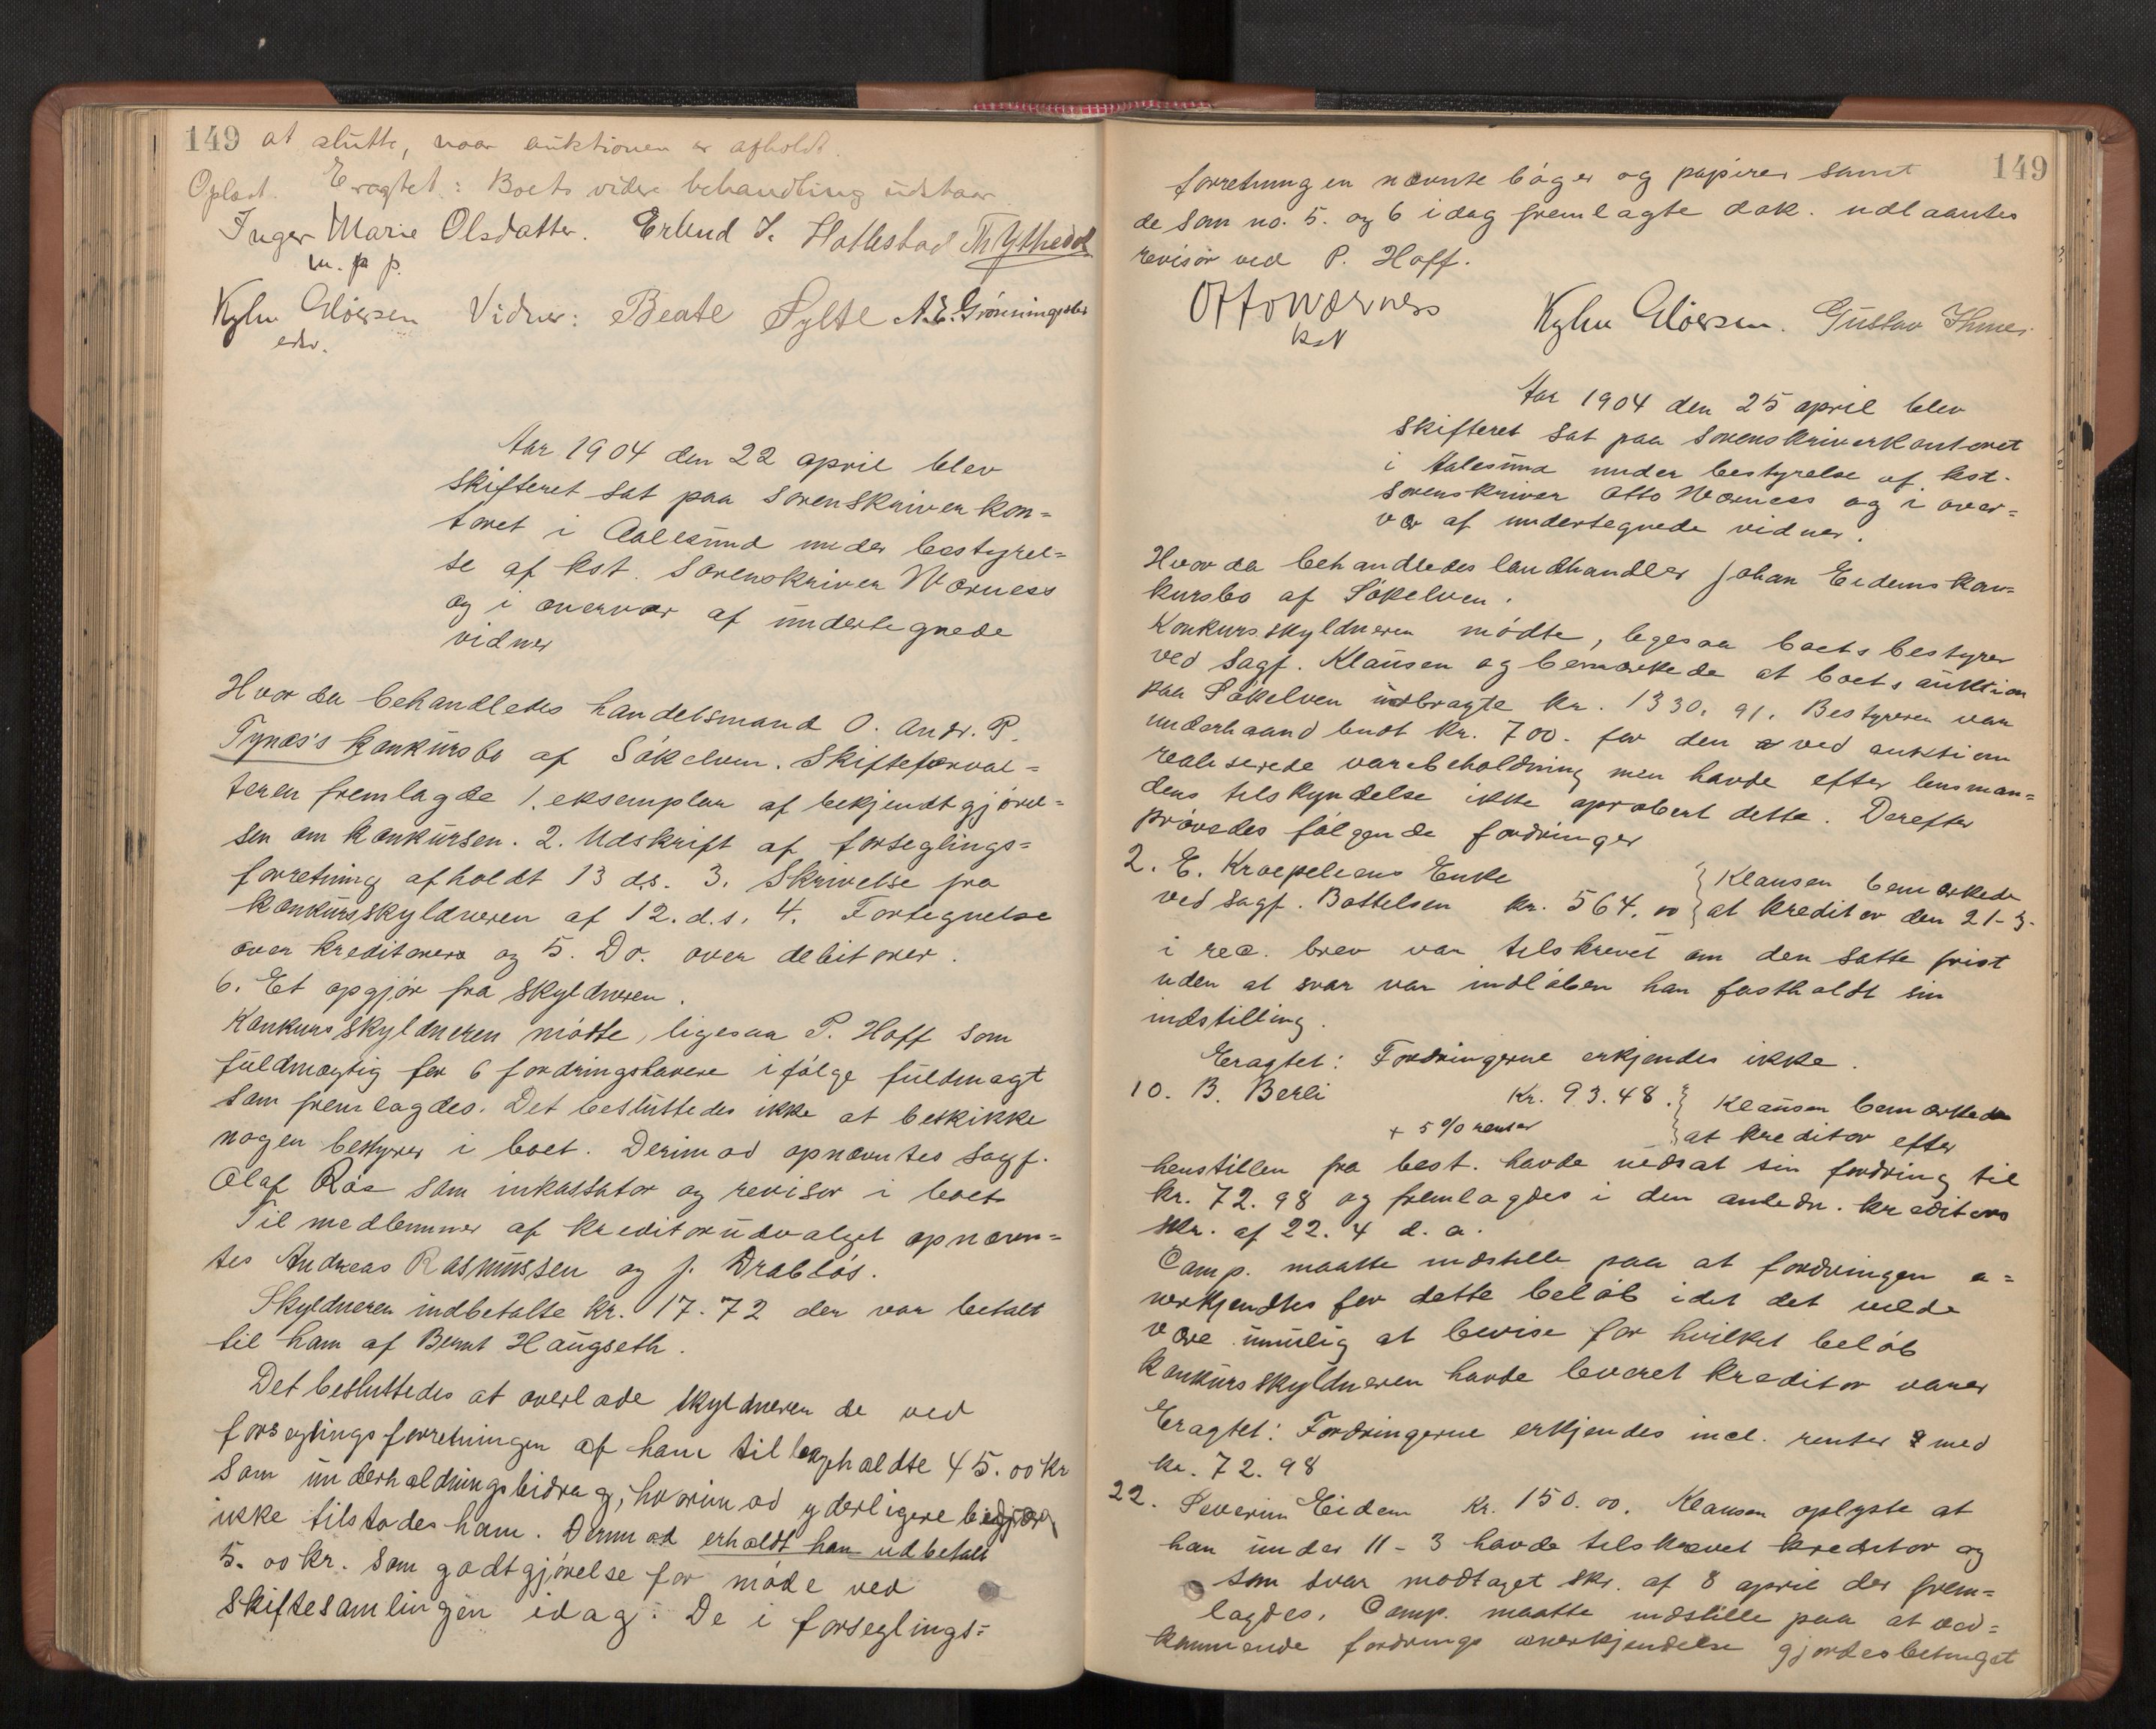 149 at slutte, naar auktionen er afholdt.
Oplæst. Eragtet: Boets videre behandling udstaar
Inger Marie Olsdatter. Erlend J. Hatlestad
m. p. p.
Kyhn Glöersen Vidner: Beate Sylte A. E. Grönningsæter
edsv.
Aar 1904 den 22 april blev
skifteret sat paa Sorenskriverkon=
toret i Aalesund under bestyrel=
se af kst. Sorenskriver Wærness
og i overvær af undertegnede
vidner
Hvor da behandledes handelsmand O. Andr. P.
Tynæs's konkursbo af Sökelven. Skifteforval=
teren fremlagde 1. eksemplar af bekjendtgjörel=
sen om konkursen. 2. Udskrift af forseglings=
forretning afholdt 13 ds. 3. Skrivelse fra
konkursskyldneren af 12. d.s. 4. Fortegnelse
over kreditorer og 5. Do. over debitorer.
6. Et opgjör fra skyldneren.
Konkursskyldneren mödte, ligesaa P. Hoff som
fuldmægtig for 6 fordringshavere ifölge fuldmagt
som fremlagdes. Det besluttedes ikke at beskikke
nogen bestyrer i boet. Derimod opnævntes Sagf.
Olaf Röe som inkassator og revisor i boet
Til medlemmer af kreditorudvalget opnævn=
tes Andreas Rasmussen og J. Drablös.
Skyldneren indbetalte kr. 17.72 der var betalt
til ham af Bernt Haugseth.
Det besluttedes at overlade skyldneren de ved
forseglingsforretningen af ham tilbageholdte 45.00 kr
som underholdningsbidrag, hvorimod yderligere bidrag
ikke tilstodes ham. Derimod erholdt han udbetalt
5.00 kr. som godtgjörelse for möde ved
skiftesamlingen idag. De i forseglings=
149
forretningen nævnte böger og papirer samt
de som no. 5. og 6 idag fremlagte dok. udlaantes
revisor ved P. Hoff.
Otto Wærness
kst
Kyhn Glöersen. Gustav
Aar 1904 den 25 april blev
skifteret sat paa Sorenskriverkontoret
i Aalesund under bestyrelse af kst.
Sorenskriver Otto Wærness og i over=
vær af undertegnede vidner.
Hvor da behandledes landhandler Johan Eidems kon=
kursbo af Sökelven.
Konkursskyldneren mödte, ligesaa boets bestyrer
ved Sagf. Klausen og bemærkede at boets auktion
paa Sökelven indbragte kr. 1330.91. Bestyreren var
underhaand budt kr. 700. for den ved auktion
realiserede varebeholdning men havde efter lensman=
dens tilskyndelse ikke aprobert dette. Derefter
prövedes fölgende fordringer
2. E. Kræpeliens Enke
ved Sagf. Bottelsen kr. 564.00 } Klausen bemærkede
at kreditor den 21-3-
i rec. brev var tilskrevet om den satte frist
uden at svar var indlöben han fastholdt sin
indstilling.
Eragtet: Fordringerne erkjendes ikke.
10. B. Berli Kr. 93.48. } Klausen bemærkede
+ 5 % renter } at kreditor efter
henstillen fra best. havde nedsat sin fordring til
kr. 72.98 og fremlagdes i den anledn. kreditors
skr. af 22.4 d. a.
Comp. maatte indstille paa at fordringen a=
nerkjendtes for dette belöb idet det vilde
være umulig at bevise for hvilket belöb
konkursskyldneren havde leveret kreditor varer
Eragtet: Fordringerne erkjendes incl. renter med
kr. 72.98
22. Severin Eidem Kr. 150.00. Klausen oplyste at
han under 11-3 havde tilskrevet kreditor og
som svar modtaget skr. af 8 april der frem=
lagdes. Comp. maatte indstille paa at ved=
kommende fordrings anerkjendelse gjordes betinget